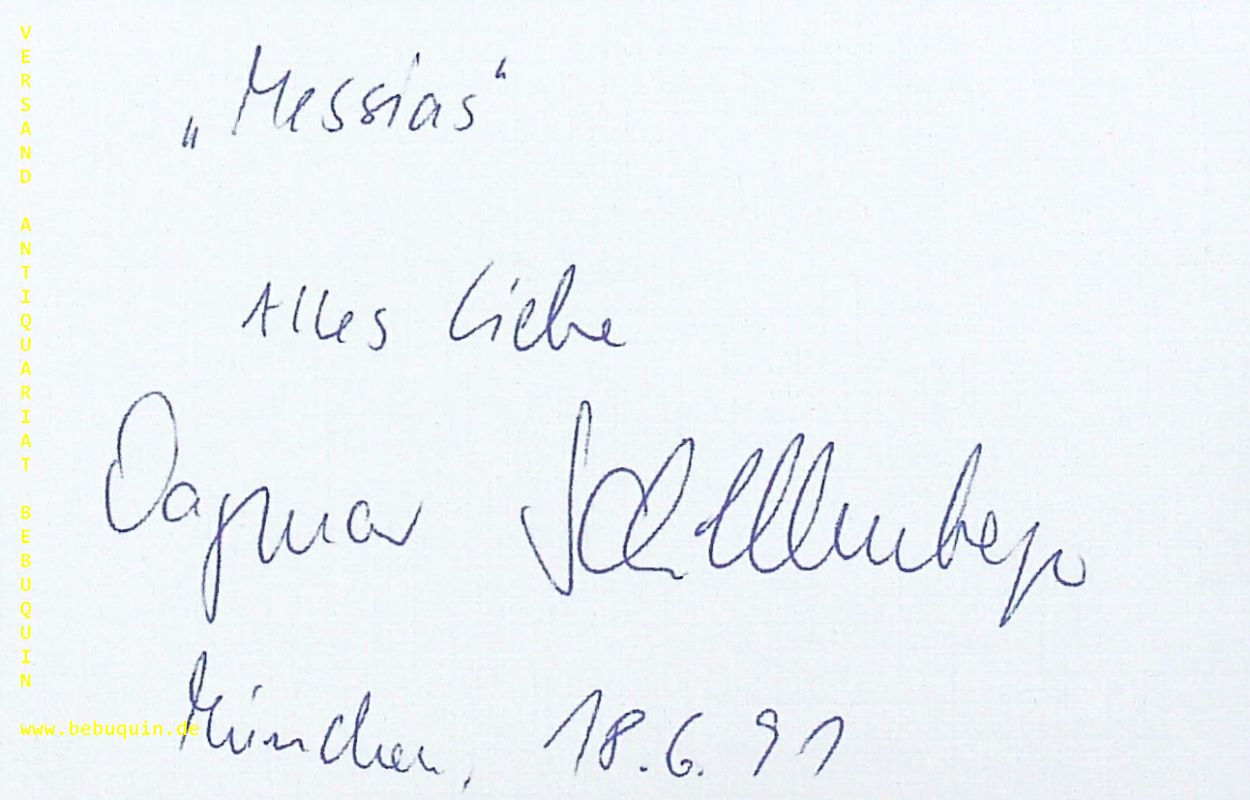 VERSAND ANTIQUARIAT BEBUQUIN
„Messias“
Alles Liebe
Dagmar Schellenberger
München, 18.6.91
www.bebuquin.de